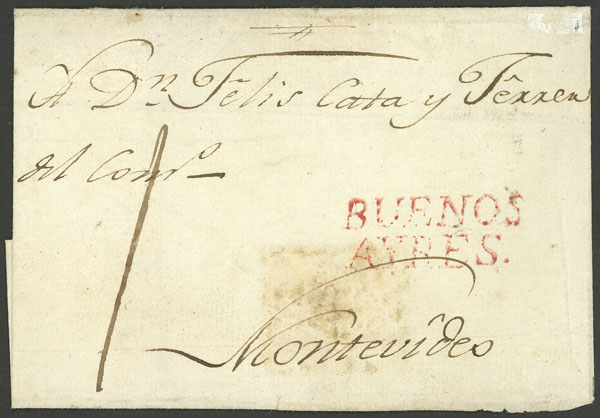 A Dn. Felis Cata y Ferrer
del Comro.
1
BUENOS
AYRES.
Montevideo